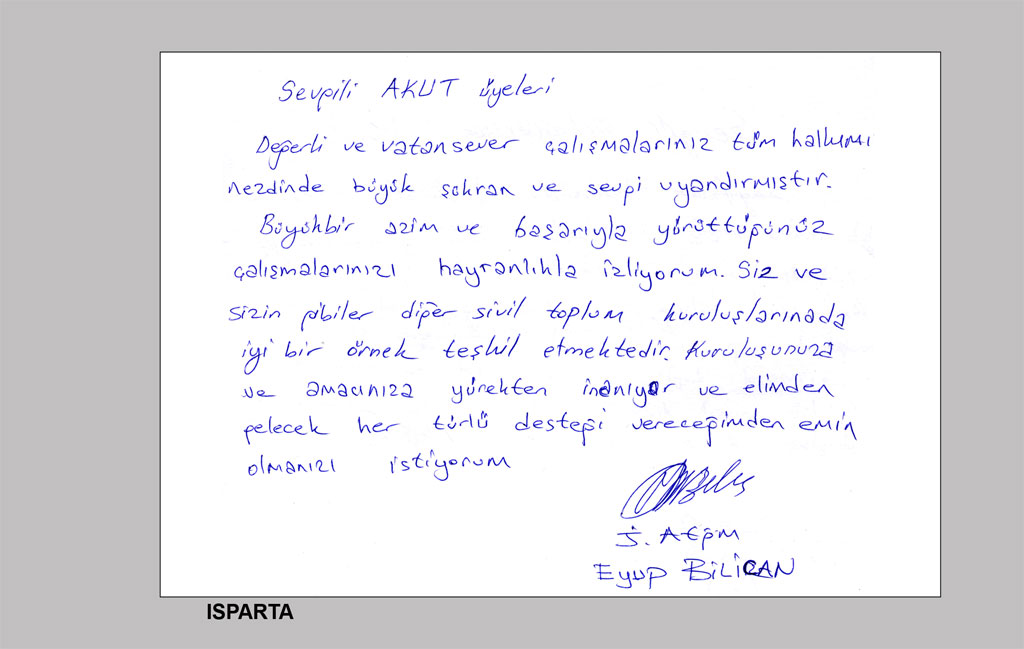 Sevgili AKUT üyeleri
Değerli ve vatansever çalışmalarınız tüm halkımı
nezdinde büyük şükran ve sevgi uyandırmıştır.
Büyükbir azim ve başarıyla yürüttüğünüz
çalışmalarınızı hayranlıkla izliyorum. Siz ve
sizin gibiler diğer sivil toplum kuruluşlarınada
iyi bir örnek teşkil etmektedir. Kuruluşunuza
ve amacınıza yürekten inanıyor ve elimden
gelecek her türlü desteği vereceğimden emin
olmanızı istiyorum
Eyup BİLİCAN
ISPARTA